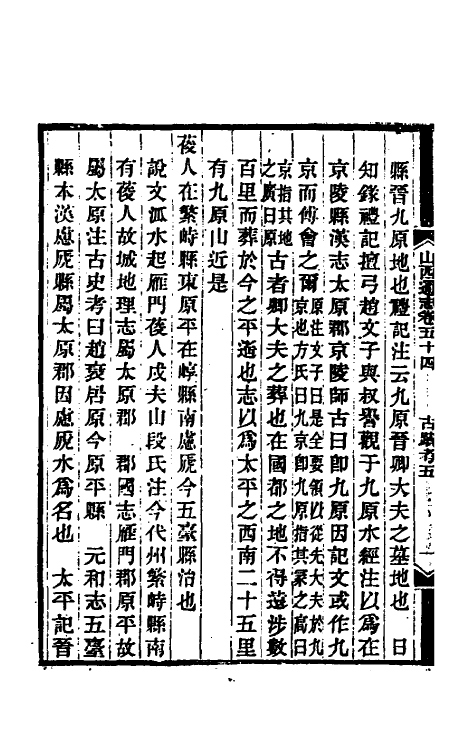 山西通志卷五十四 古蹟考五
縣晉九原地也禮記注云九原晉卿大夫之墓地也 日
知錄禮記檀弓趙文子與叔譽觀于九原水經注以爲在
京陵縣漢志太原郡京陵師古曰卽九原因記文或作九
京而傅會之爾原注文子曰是全要領以從先大夫於九京地方氏曰九京卽九原指其冢之高曰京指其地之廣曰原古者卿大夫之葬也在國都之地不得遠涉數
百里而葬於今之平遙也志以爲太平之西南二十五里
有九原山近是
葰人在繁峙縣東原平在崞縣南慮虒今五臺縣治也
說文泒水起雁門葰人戍夫山段氏注今代州繁峙縣南
有葰人故城地理志屬太原郡 郡國志雁門郡原平故
屬太原注古史考曰趙衰居原今原平縣 元和志五臺
縣本漢慮虒縣屬太原郡因慮虒水爲名也 太平記晉